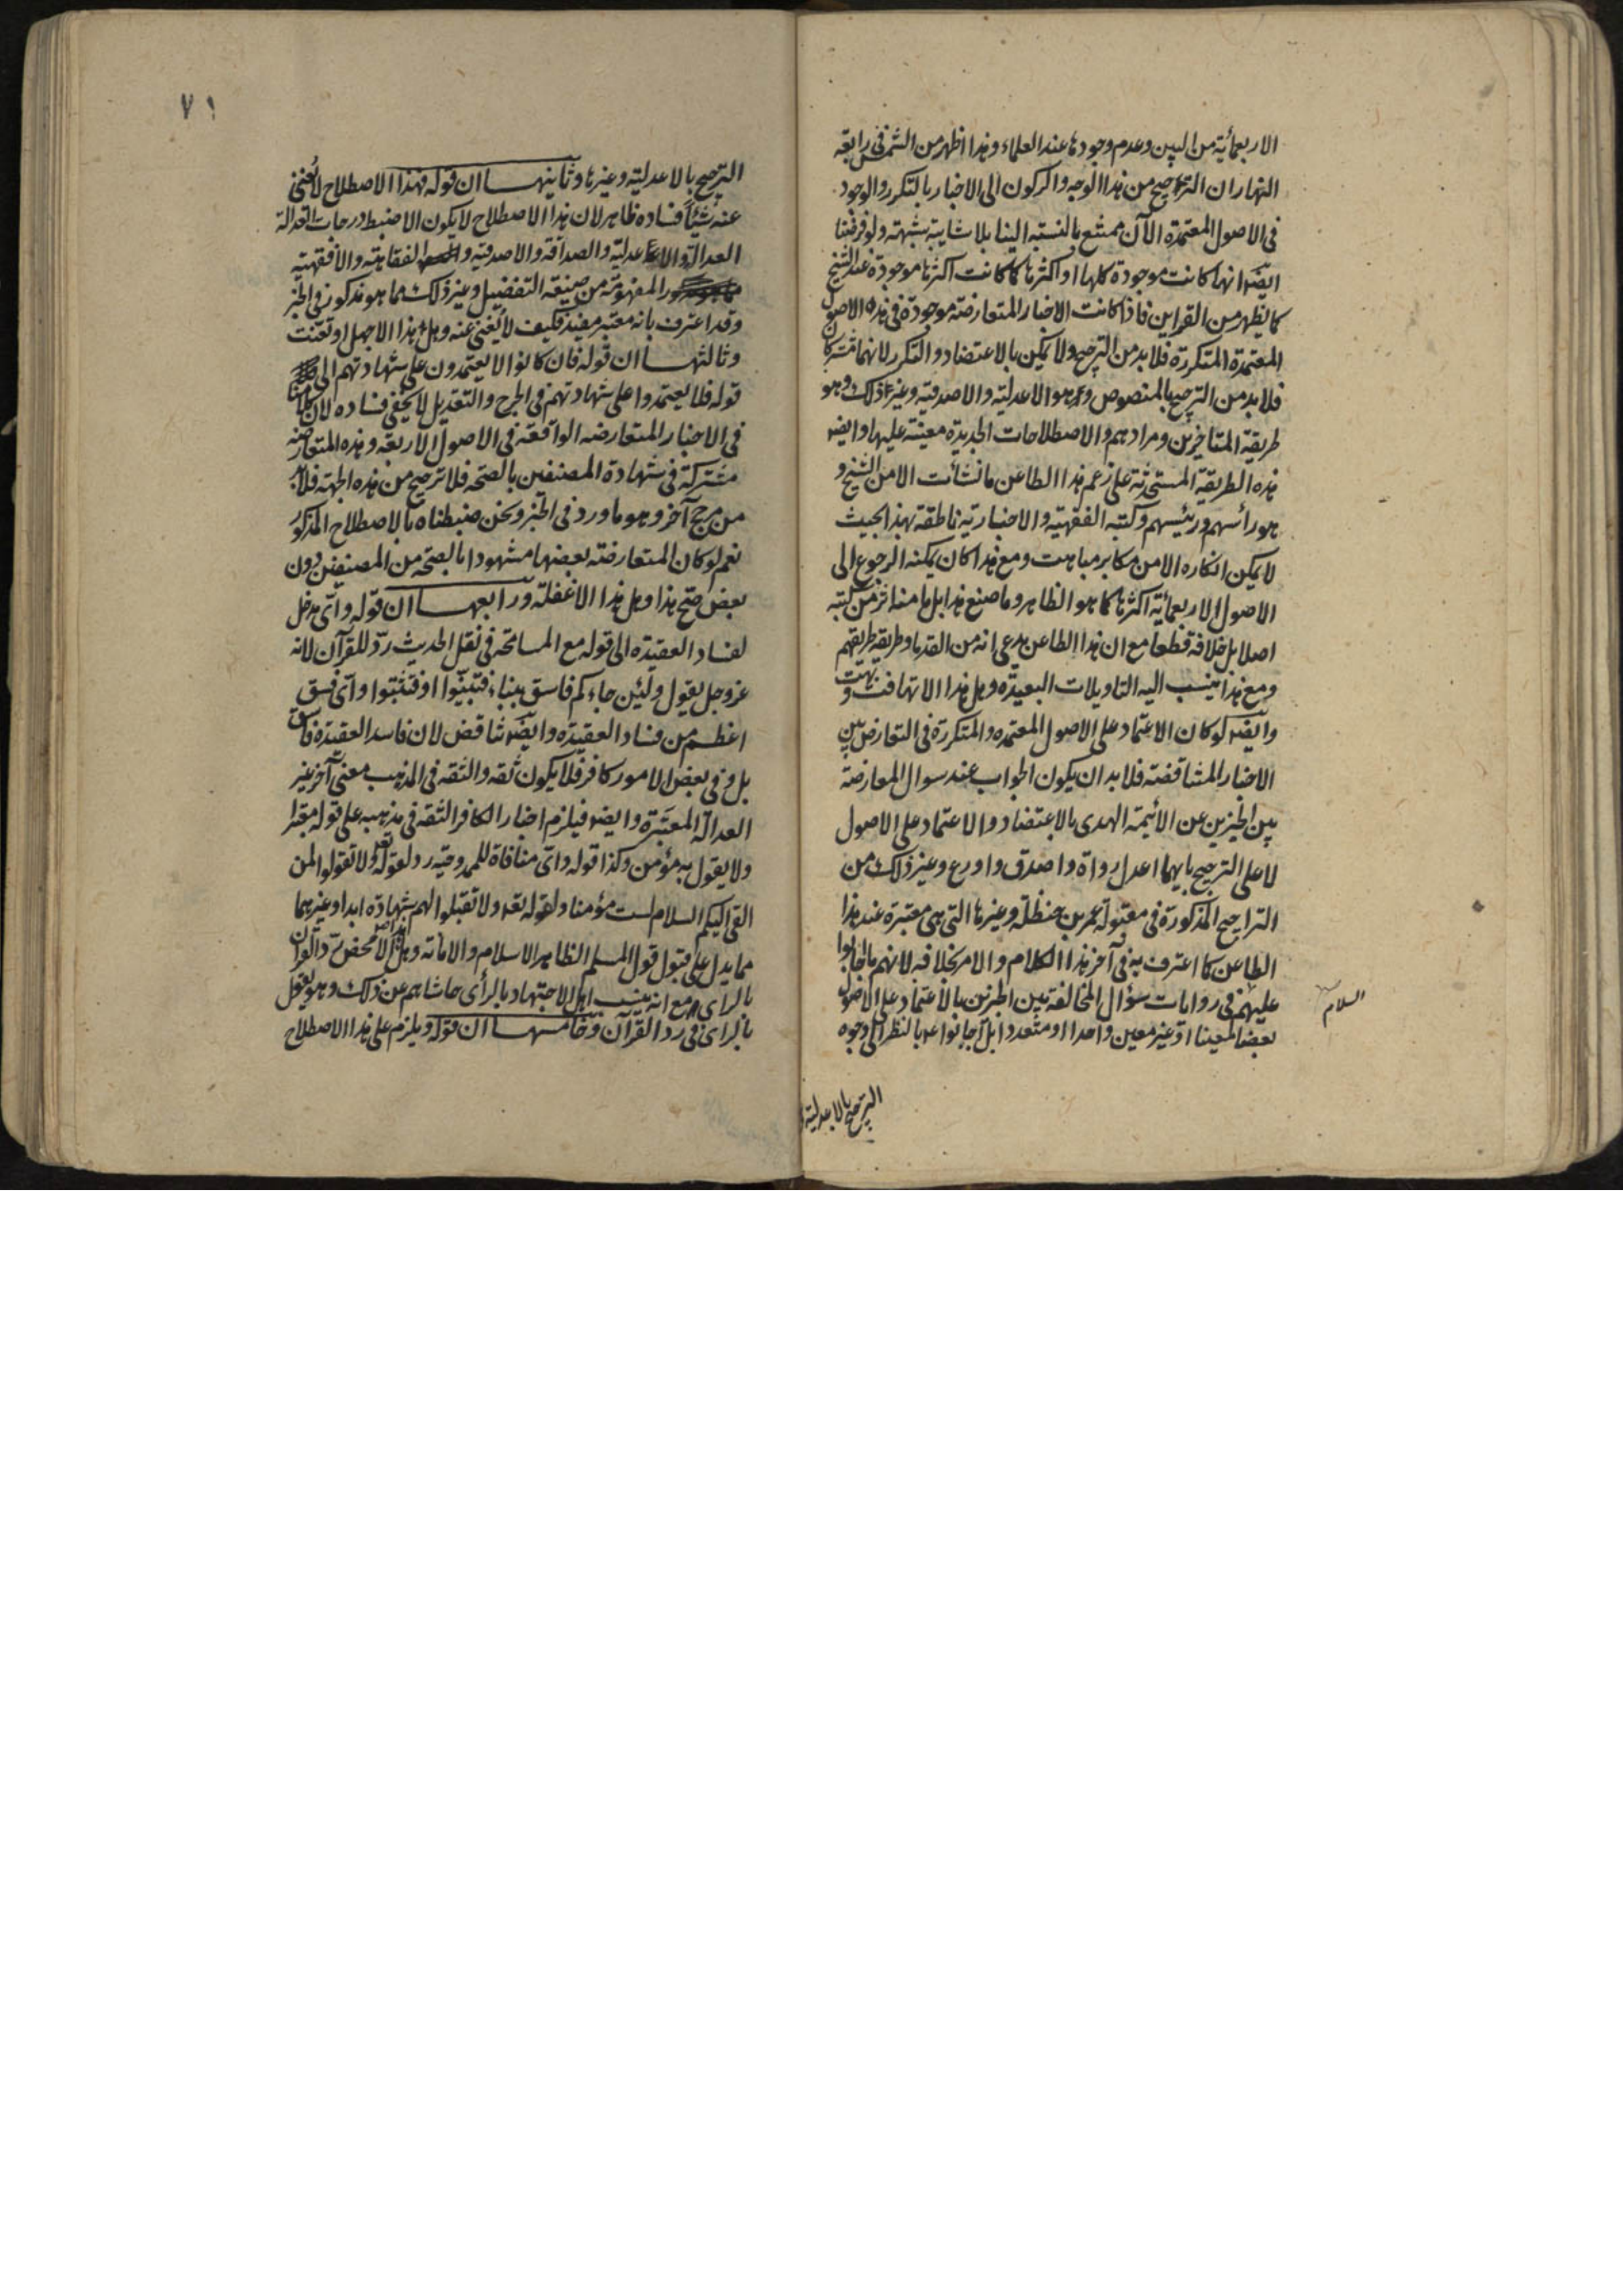 الاربعمائة من البين وعدم وجودها عند العلماء وهذا اظهر من الشمس في رابعة
النهار ان الترجيح من هذا الوجه والركون الى الاخبار بالتكرر والوجود
في الاصول المعتمدة الآن ممتنع بالنسبة الينا بلا شايبة شبهة ولو فرضنا
ايضا انها كانت موجودة كلها او اكثرها كما كانت اكثرها موجودة عند الشيخ
كما يظهر من القراين فاذا كانت الاخبار المتعارضة موجودة في هذه الاصول
المعتمدة المتكررة فلا بد من الترجيح ولا يمكن بالاعتضاد والتكرر لانهما مشتركان
فلا بد من الترجيح بالمنصوص وهو الاعدلية والاصدقية وغير ذلك وهو
طريقة المتاخرين ومرادهم والاصطلاحات الجديدة معينة عليها وايضا
هذه الطريقة المستحدثة على زعم هذا الطاعن ما نشأت الا من الشيخ و
هو رأسهم ورئيسهم وكتبه الفقهية والاخبارية ناطقة بهذا بحيث
لا يمكن انكاره الا من مكابر مباهت ومع هذا كان يمكنه الرجوع الى
الاصول الاربعمائة اكثرها كما هو الظاهر وما صنع هذا بل ما من اثر من كتبه
اصلا بل خلافه قطعا مع ان هذا الطاعن يدعي انه من القدما وطريقه طريقهم
ومع هذا ينسب اليه التاويلات البعيدة وهل هذا الا تهافت وبهت
وايضا لو كان الاعتماد على الاصول المعتمدة والمتكررة في التعارض بين
الاخبار المتناقضة فلا بد ان يكون الجواب عند سوال المعارضة
بين الخبرين عن الأئمة الهدى بالاعتضاد والاعتماد على الاصول
لا على الترجيح بايهما اعدل رواة واصدق واورع وغير ذلك من
التراجيح المذكورة في مقبولة عمر بن حنظلة وغيرها التي هي معتبرة عند هذا
الطاعن كما اعترف به في آخر هذا الكلام والامر بخلافه لانهم ما اجابوا
عليهم السلام في روايات سؤال المخالفة بين الخبرين بالاعتماد على الاصول
بعضا معينا او غير معين واحدا او متعددا بل اجابوا بالنظر الى وجوه
الترجيح بالاعدلية
٧١
الترجيح بالاعدلية وغيرها وثانيها ان قوله فهذا الاصطلاح لا يغني
عنه شيئا فساده ظاهر لان هذا الاصطلاح لا يكون الا ضبط درجات العدالة
العدالة والاعدلية والصداقة والاصدقية والفقاهة والافقهية
المفهومة من صيغة التفضيل وغير ذلك مما هو مذكور في الخبر
وقد اعترف بانه معتبر مفيد فكيف لا يغني عنه وهل هذا الا جهل او تعنت
وثالثها ان قوله فان كانوا لا يعتمدون على شهادتهم الى
قوله فلا يعتمدوا على شهادتهم في الجرح والتعديل لا يخفى فساده لان كلامنا
في الاخبار المتعارضه الواقعة في الاصول الاربعة وهذه المتعارضة
مشتركة في شهادة المصنفين بالصحة فلا ترجيح من هذه الجهة فلا بد
من مرجح آخر وهو ما ورد في الخبر ونحن ضبطناه بالاصطلاح المذكور
نعم لو كان المتعارضة بعضها مشهودا بالصحة من المصنفين دون
بعض صح هذا وهل هذا الا غفلة ورابعها ان قوله واي مدخل
لفساد العقيدة الى قوله مع المسامحة في نقل الحديث رد للقرآن لانه
عز وجل يقول ولئن جاءكم فاسق بنباء فتبينوا او فتثبتوا واي فسق
اعظم من فساد العقيدة وايضا تناقض لان فاسد العقيدة فاسق
بل وفي بعض الامور كافر فلا يكون ثقه والثقه في المذهب معنى آخر غير
العدالة المعتبرة وايضا فيلزم اخبار الكافر الثقه في مذهبه على قوله معتبرا
ولا يقول به مؤمن وكذا قوله واي منافاة للممدوحية رد لقوله تعالى ولا تقولوا لمن
القى اليكم السلام لست مؤمنا ولقوله تعالى ولا تقبلوا لهم شهادة ابدا وغيرهما
مما يدل على قبول قول المسلم الظاهر الاسلام والامانة وهل هذا الا محض رد القرآن
بالراي مع انه ينسب اهل الاجتهاد بالرأى حاشاهم عن ذلك وهو يقول
بالراى في رد القرآن وخامسها ان قوله ويلزم على هذا الاصطلاح